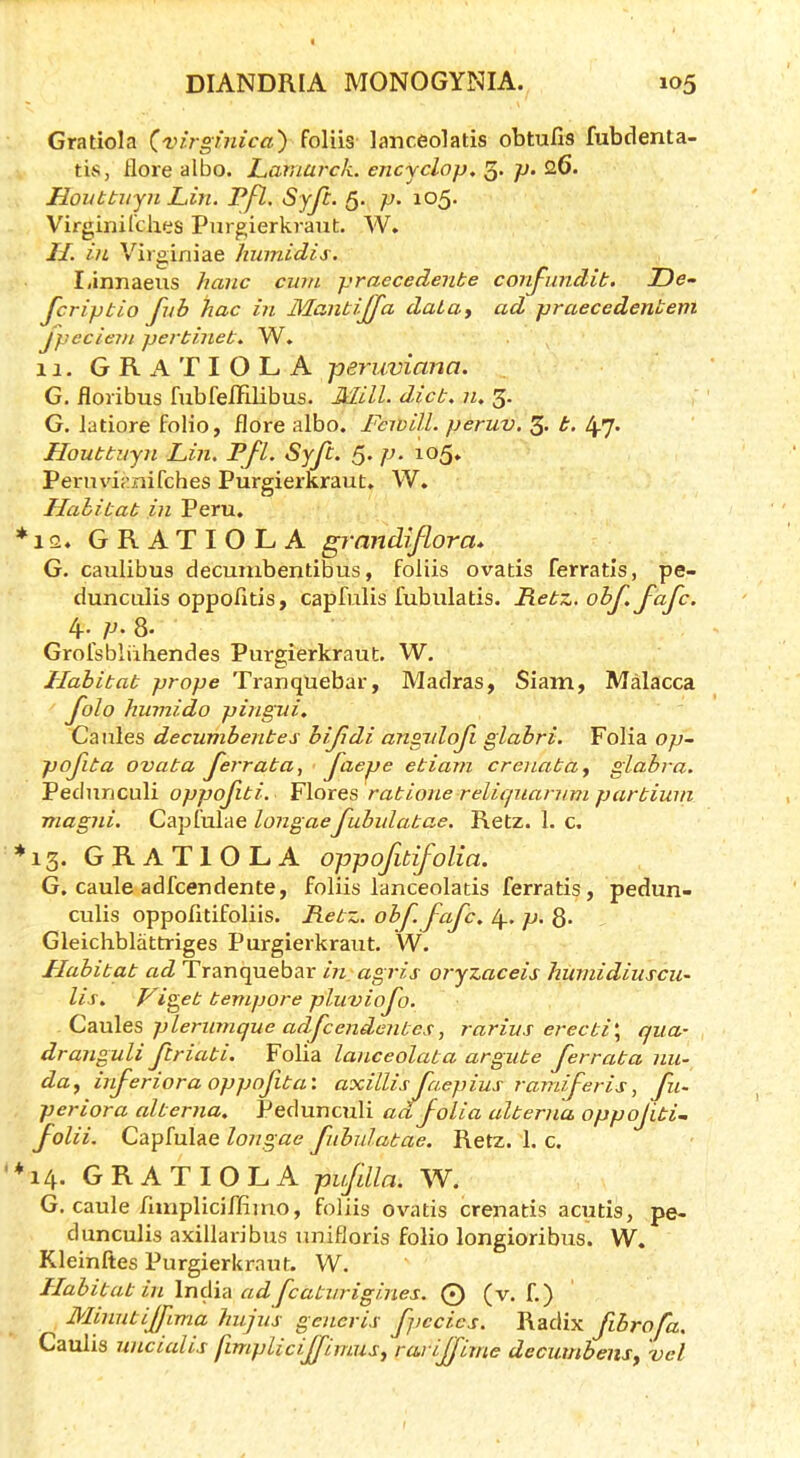 DIANDRIA MONOGYNIA. 105
Gratiola (virginica) foliis lanceolatis obtuſis ſubdenta-
tis, flore albo. Lamarck. encyclop. 3. p. 26.
Houttuyn Lin. Pfl. Syſt. 5. p. 105.
Virginiſches Purgierkraut. W.
H. in Virginiae humidis.
Linnaeus hanc cum praecedente confundit. De-
ſcriptio ſub hac in Mantiſſa data, ad praecedentem
ſpeciem pertinet. W.
11. GRATIOLA peruviana.
G. floribus ſubſeſſilibus. Mill. dict. n. 3.
G. latiore folio, flore albo. Fewill. peruv. 3. t. 47.
Houttuyn Lin. Pfl. Syſt. 5. p. 105.
Peruvianiſches Purgierkraut. W.
Habitat in Peru.
*12. GRATIOLA grandiflora.
G. caulibus decumbentibus, foliis ovatis ſerratis, pe-
dunculis oppoſitis, capſulis ſubulatis. Retz. obſ. faſc.
4. p. 8.
Groſsblühendes Purgierkraut. W.
Habitat prope Tranquebar, Madras, Siam, Malacca
ſolo humido pingui.
Caules decumbentes bifidi anguloſi glabri. Folia op-
poſita ovata ſerrata, ſaepe etiam crenata, glabra.
Pedunculi oppoſiti. Flores ratione reliquarum partium
magni. Capſulae longae ſubulatae. Retz. l. c.
*13. GRATIOLA oppoſitifolia.
G. caule adſcendente, foliis lanceolatis ſerratis, pedun-
culis oppoſitifoliis. Retz. obſ. faſc. 4. p. 8.
Gleichblättriges Purgierkraut. W.
Habitat ad Tranquebar in agris oryzaceis humidiuscu-
lis. Viget tempore pluvioſo.
Caules plerumque adſcendentes, rarius erecti; qua-
dranguli ſtriati. Folia lanceolata argute ſerrata nu-
da, inferiora oppoſita: axillis ſaepius ramiferis, ſu-
periora alterna. Pedunculi ad folia alterna oppoſiti-
folii. Capſulae longae ſubulatae. Retz. l. c.
*14. GRATIOLA puſilla. W.
G. caule ſimpliciſſimo, foliis ovatis crenatis acutis, pe-
dunculis axillaribus unifloris folio longioribus. W.
Kleinſtes Purgierkraut. W.
Habitat in India ad ſcaturigines. ☉ (v. ſ.)
Minutiſſima hujus generis ſpecies. Radix fibroſa.
Caulis uncialis ſimpliciſſimus, rariſſime decumbens, vel